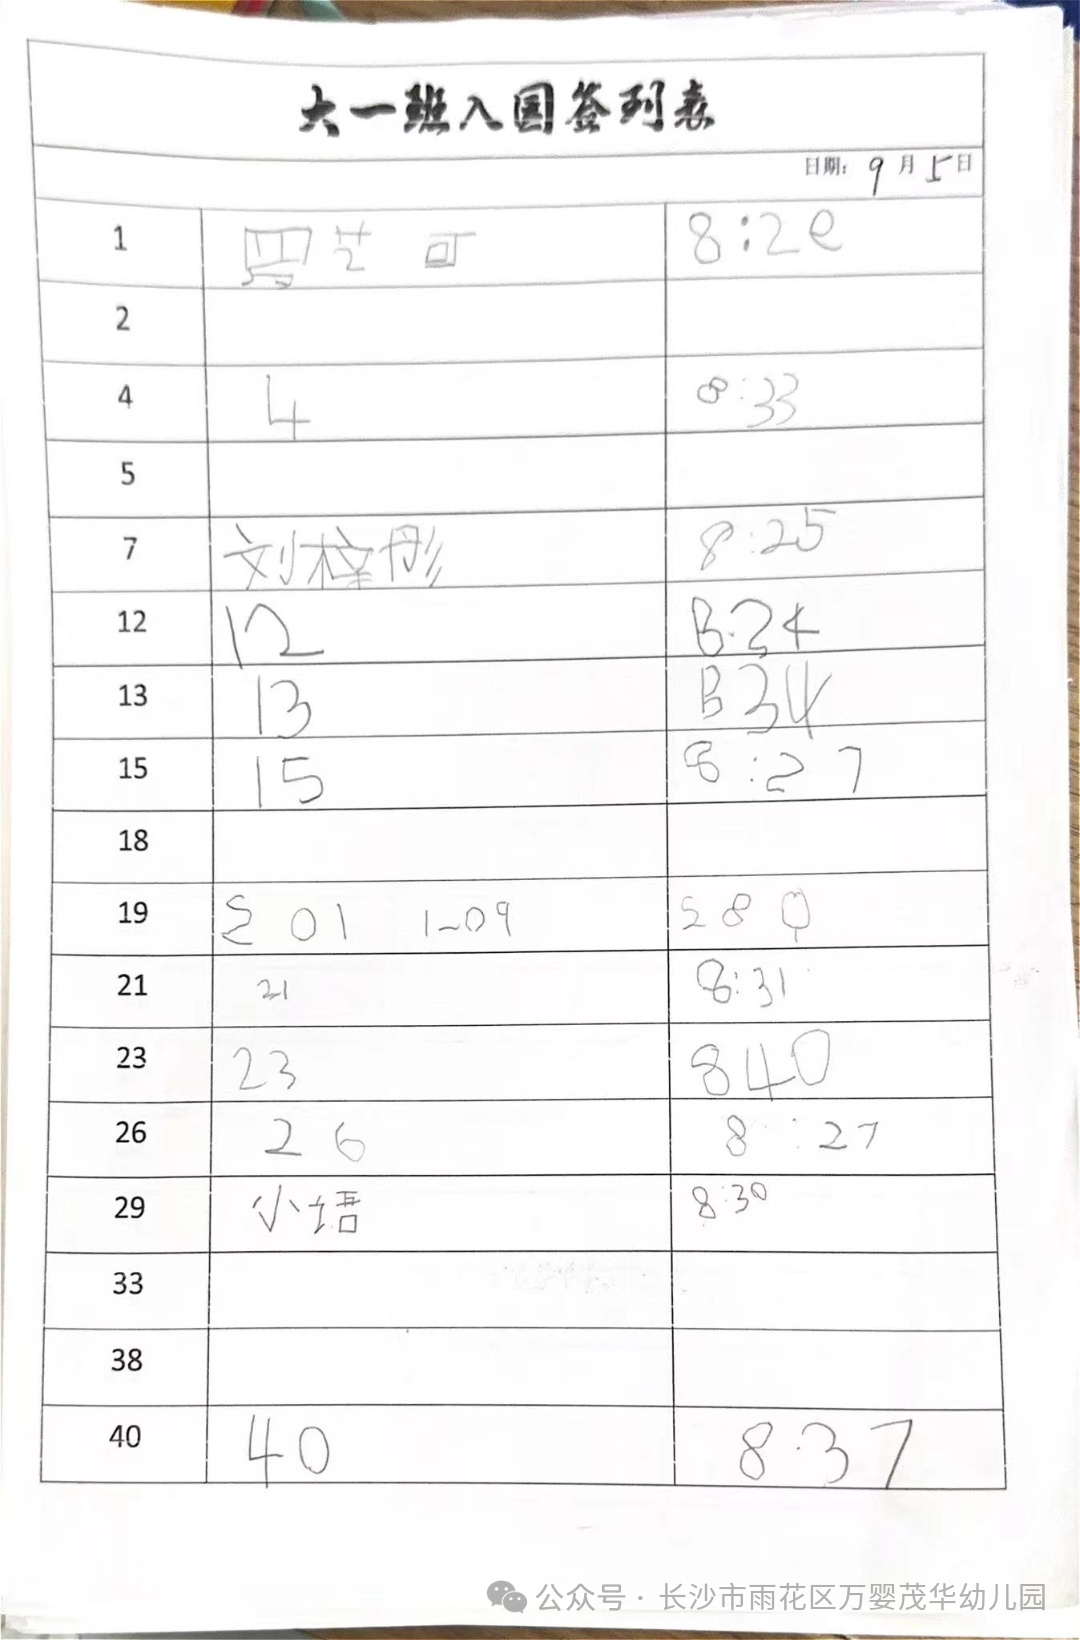 大一班入园签到表
日期: 9月5日
1 8:20
2
4 4 8:33
5
7 刘梓彤 8:25
12 12 8:24
13 13 8 34
15 15 8:27
18
19
21 21 8:31
23 23 840
26 26 8:27
29 小语 8:30
33
38
40 40 8:37
公众号·长沙市雨花区万婴茂华幼儿园